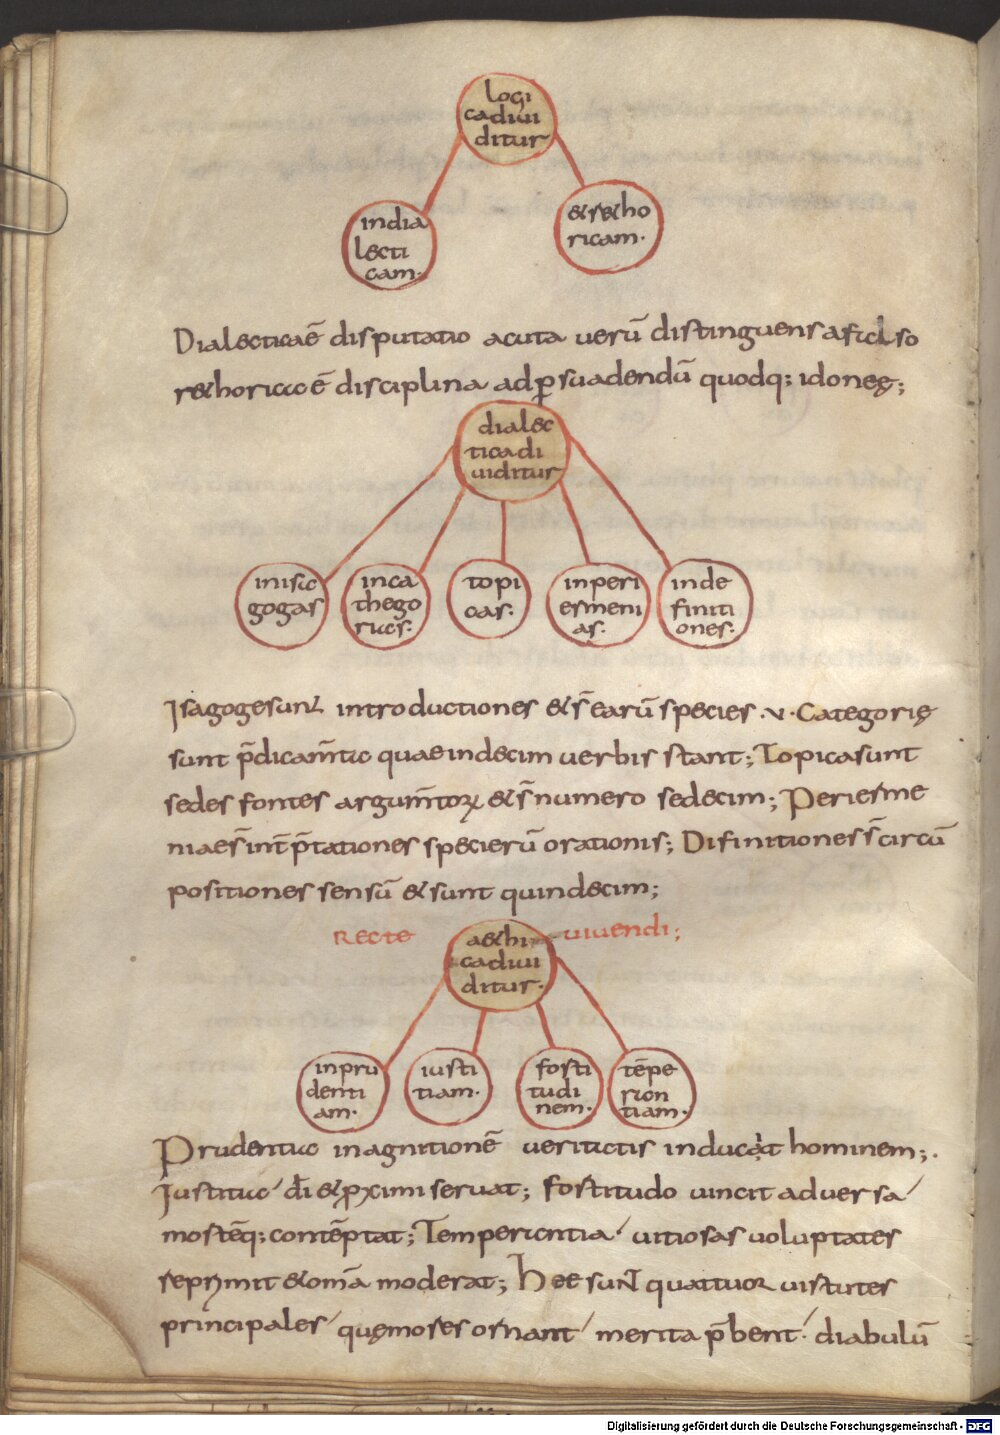 logi
cadiui
ditur
india
lecti
cam·
& r&ho
ricam·
Dialecticaē disputatio acuta uerū distinguens afalso
r&horicaē disciplina adp̲suadendū quodq; idoneę;
dialec
ticadi
uiditur
inisa
gogas
inca
thego
rias·
topi
cas·
inperi
ermeni
as·
inde
finiti
ones·
Isagoge sunt introductiones & s̄ earū species ·v· Categorię
sunt p̄dicam̄ta quae indecim uerbis stant; Topica sunt
sedes fontes argum̄toꝝ & s̄ numero sedecim; Perierme
niae s̄ int̄p̄tationes specierū orationis; Difinitiones s̄ circū
positiones sensū & sunt quindecim;
Recte uiuendi;
a&hi
cadiui
ditur·
inpru
denti
am·
iusti
tiam·
forti
tudi
nem·
tēpe
ran
tiam·
Prudentia inagnitionē ueritatis inducat hominem;·
Iustitia dī & pximi seruat; fortitudo uincit aduersa
mortēq; contēptat; Temperantia uitiosas uoluptates
reprimit & om̄a moderat; Hee sunt quattuor uirtutes
principales quę mores ornant merita p̄bent· diabulū
Digitalisierung gefördert durch die Deutsche Forschungsgemeinschaft - DFG